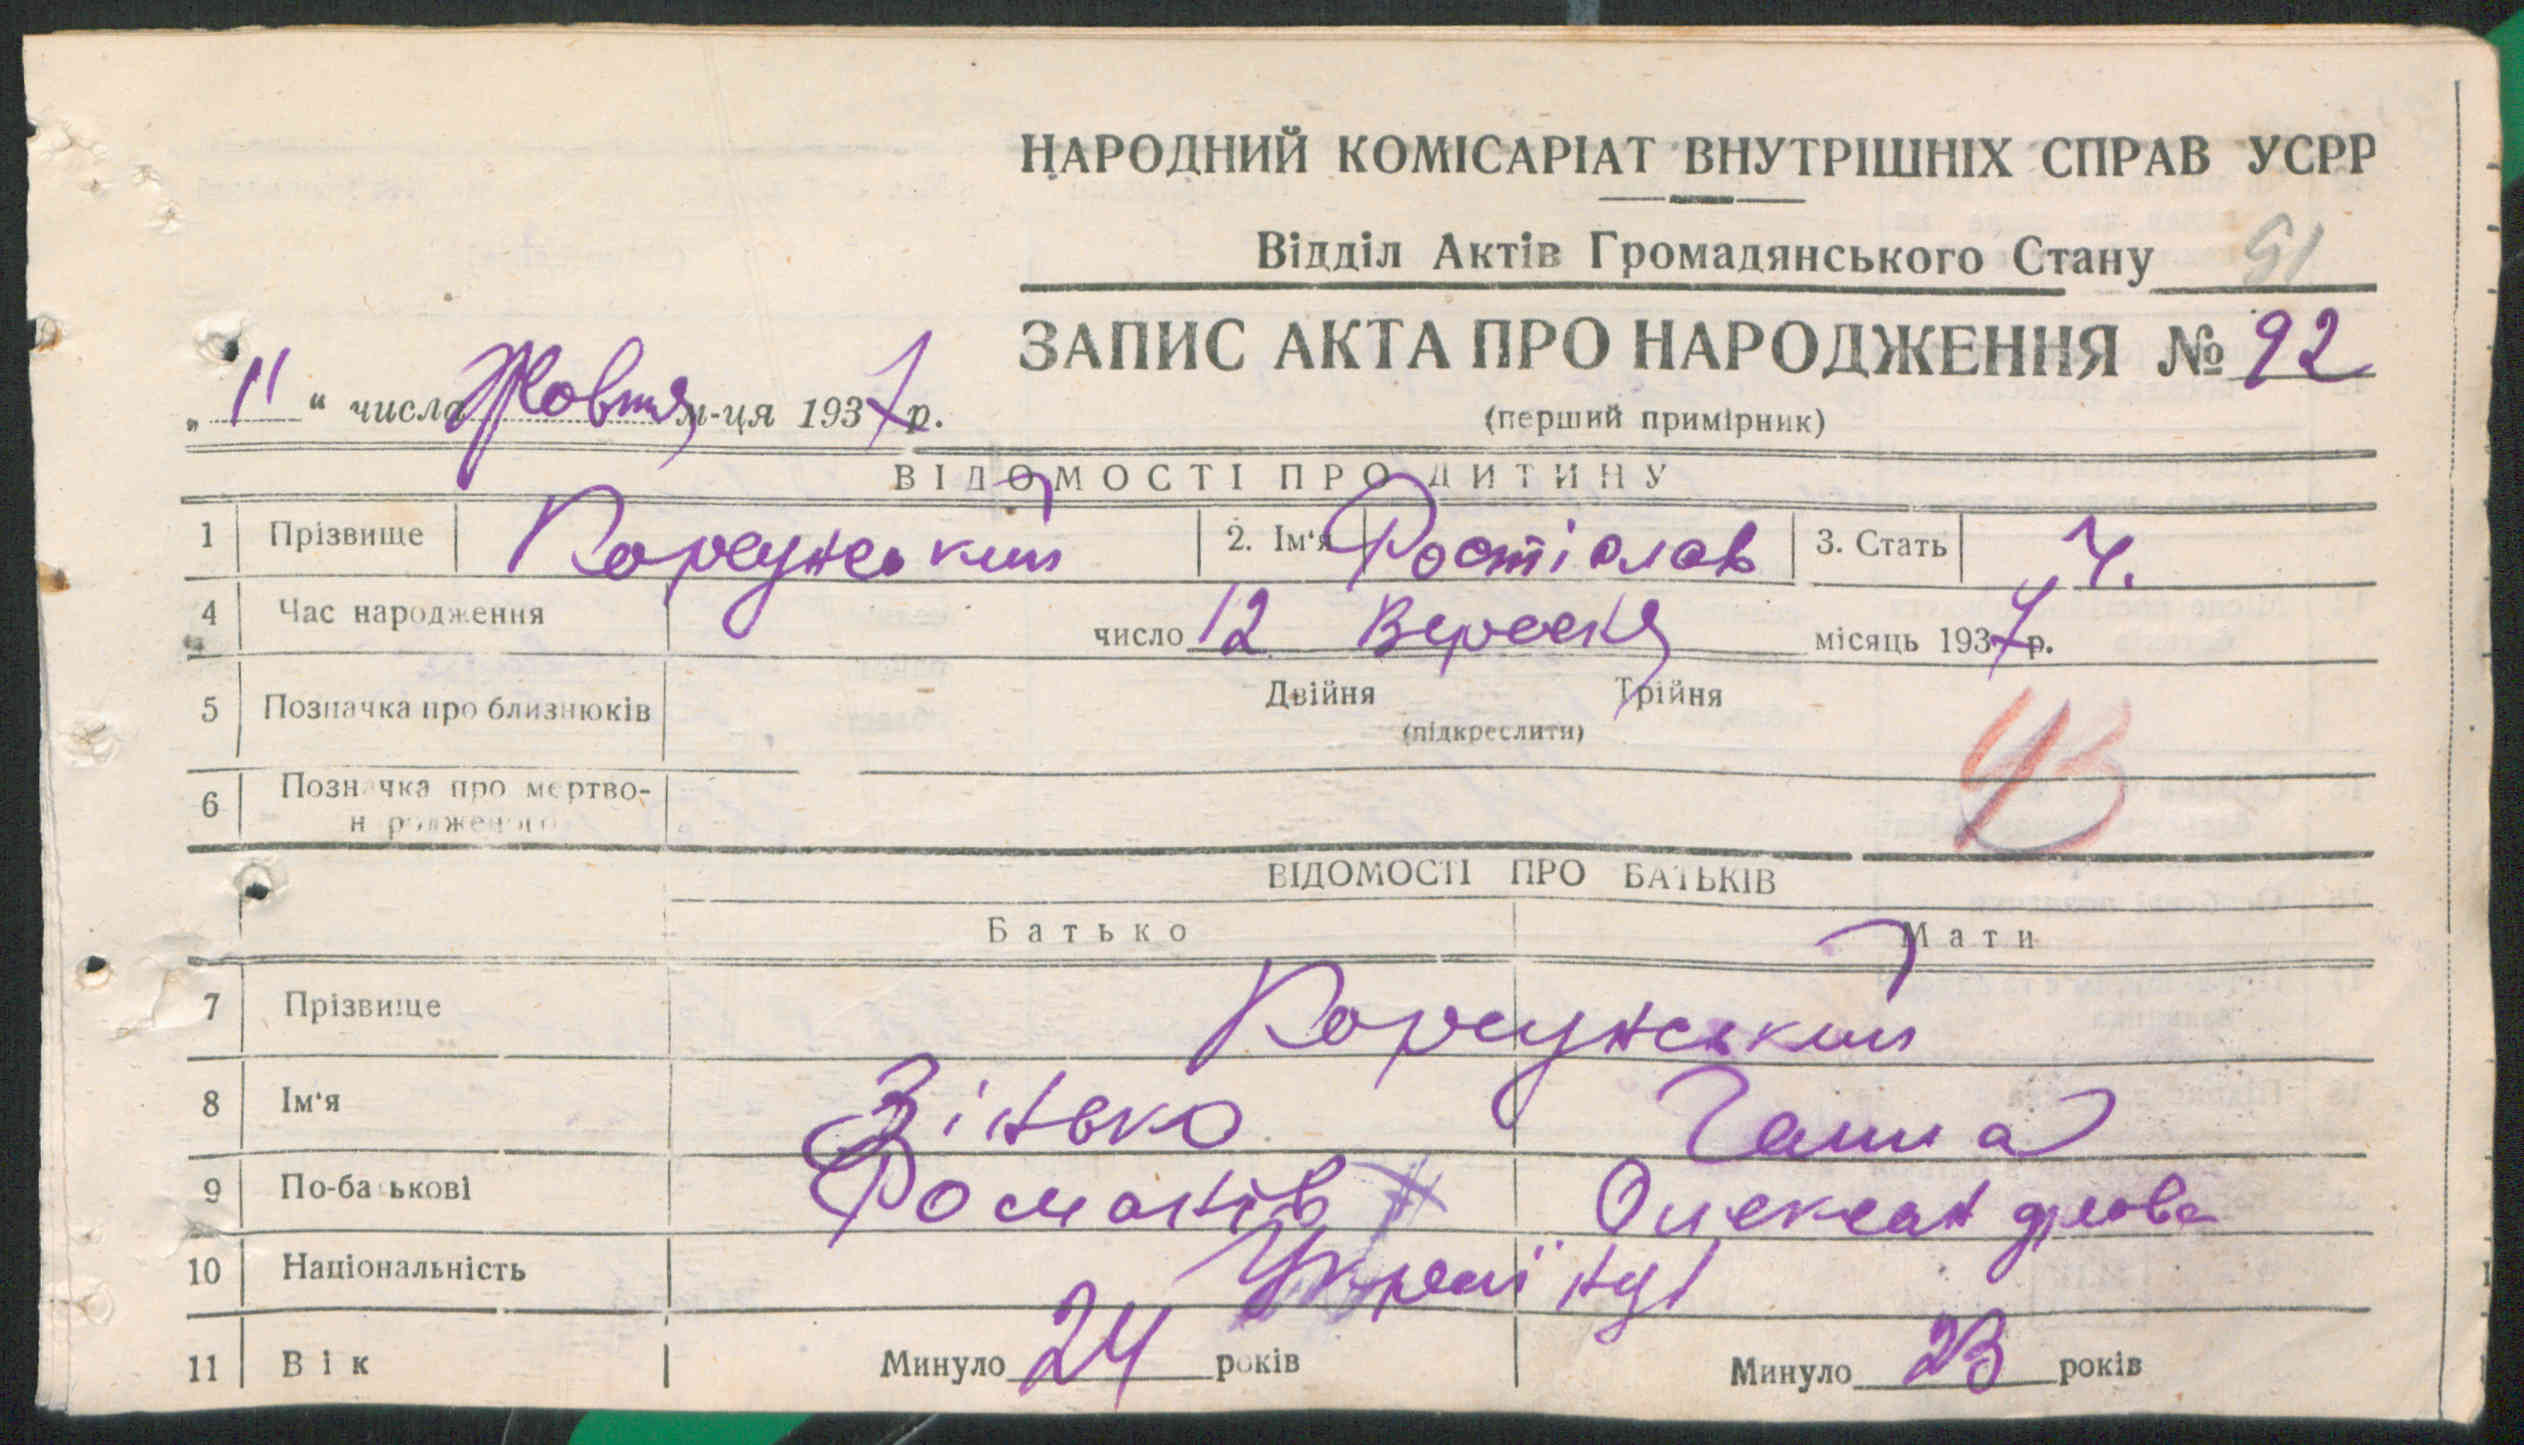 НАРОДНИЙ КОМІСАРІАТ ВНУТРІШНІХ СПРАВ УСРР
Відділ Актів Громадянського Стану 91
ЗАПИС АКТА ПРО НАРОДЖЕННЯ № 92
„ 11 “ числа Жовтня м-ця 1937 р.
(перший примірник)
ВІДОМОСТІ ПРО ДИТИНУ
1 Прізвище Корсунський 2. Ім'я Ростіслав 3. Стать Ч.
4 Час народження число 12 Вересня місяць 1937 р.
5 Позначка про близнюків Двійня Трійня
(підкреслити)
6 Позначка про мертво-
народженого
ВІДОМОСТІ ПРО БАТЬКІВ
Батько Мати
7 Прізвище Корсунський
8 Ім'я Зінько Ганна
9 По-батькові Романів Олександрова
10 Національність Українці
11 Вік Минуло 24 років Минуло 23 років